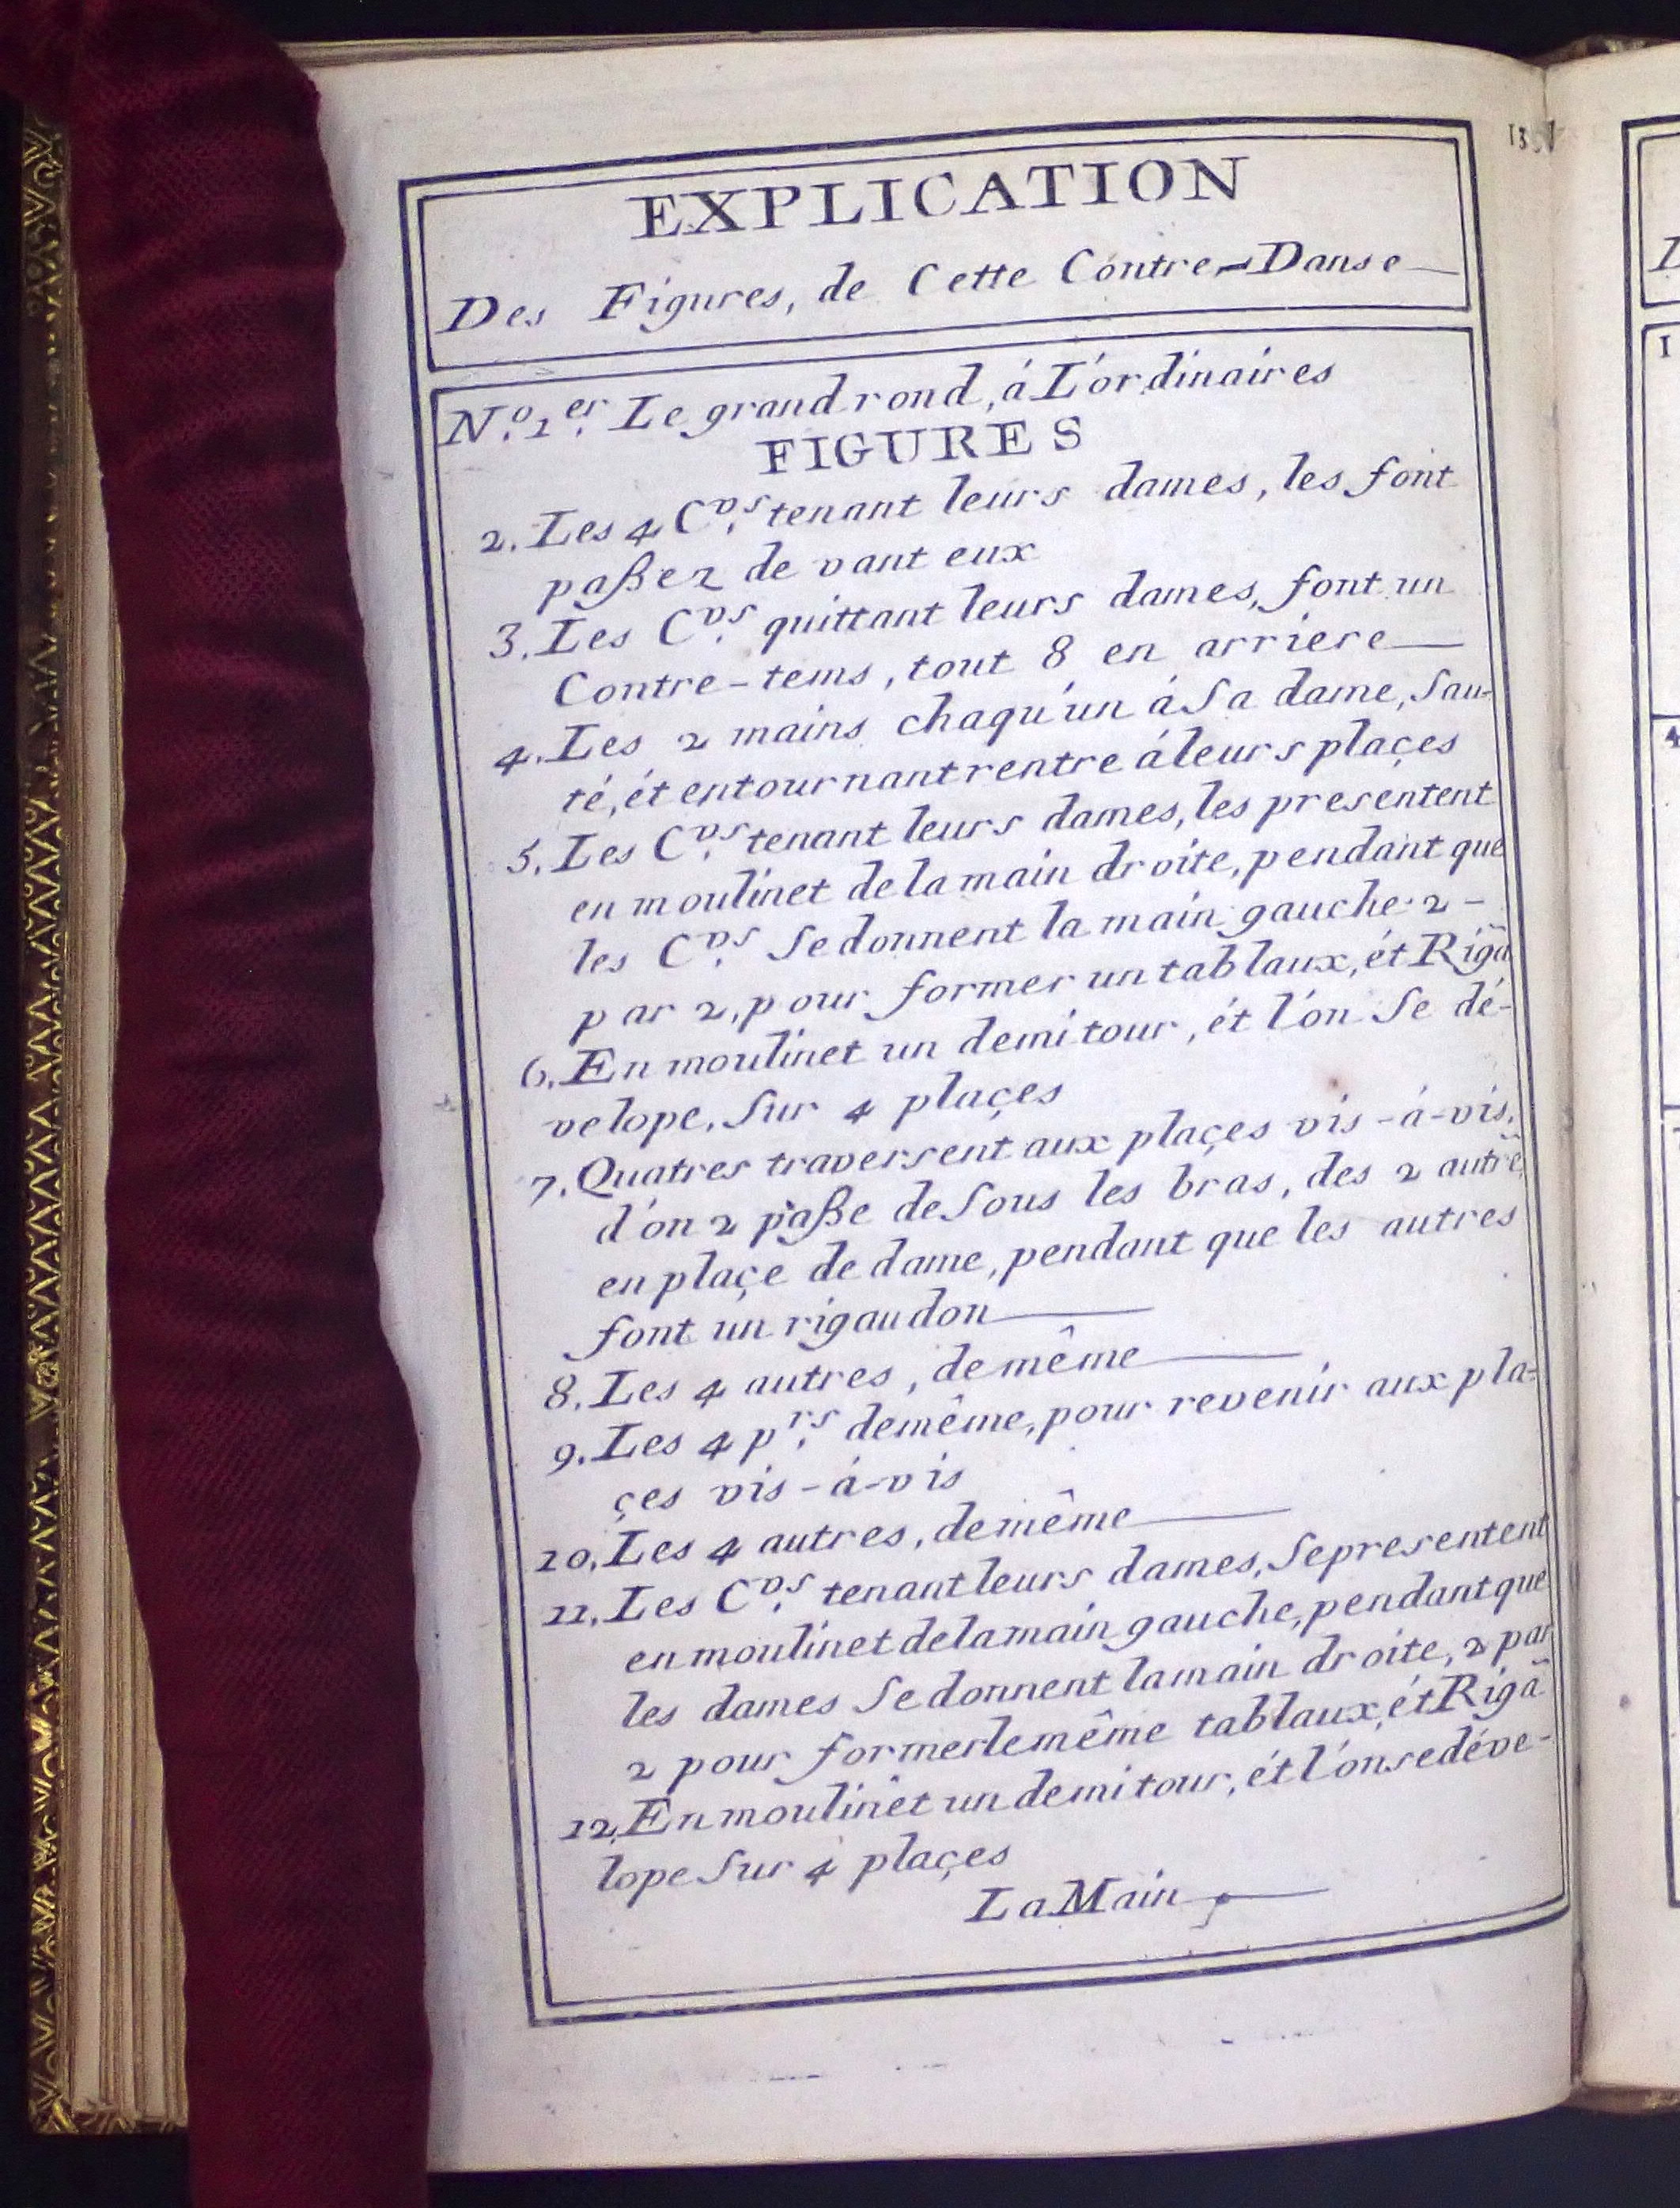 EXPLICATION
Des Figures, de Cette Contre-Danse
N.º 1.er Le grand rond, á L'ordinaires
FIGURES
2. Les 4 C.ds tenant leurs dames, les font
paßez de vant eux
3. Les C.ds quittant leurs dames, font un
Contre-tems, tout 8 en arriere
4. Les 2 mains chaqu'un á Sa dame, Sau-
té, ét entournant rentre á leurs plaçes
5. Les C.ds tenant leurs dames, les presentent
en moulinet de la main droite, pendant que
les C.ds Se donnent la main gauche 2 -
par 2, pour former un tablaux, ét Riga
6. En moulinet un demi tour, ét l'on Se dé-
velope, Sur 4 plaçes
7. Quatres traversent aux plaçes vis-á-vis,
d'on 2 paße de Sous les bras, des 2 autre
en plaçe de dame, pendant que les autres
font un rigaudon
8. Les 4 autres, de même
9. Les 4 p.rs de même, pour revenir aux pla-
çes vis-á-vis
10. Les 4 autres, de même
11. Les C.ds tenant leurs dames, Se presentent
en moulinet de la main gauche, pendant que
les dames Se donnent la main droite, 2 par
2 pour former le même tablaux, ét Riga
12. En moulinet un demi tour, ét l'on se déve-
lope Sur 4 plaçes
La Main
I